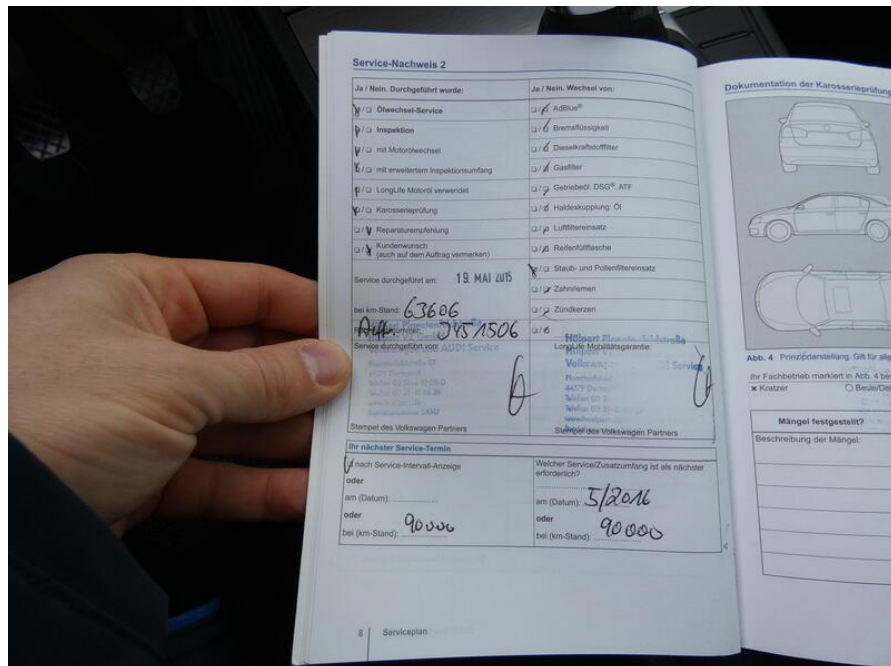 Service-Nachweis 2
Ja / Nein. Durchgeführt wurde:
Ja / Nein. Wechsel von:
Ölwechsel-Service
AdBlue®
Inspektion
Bremsflüssigkeit
mit Motorölwechsel
Dieselkraftstofffilter
mit erweitertem Inspektionsumfang
Gasfilter
LongLife Motoröl verwendet
Getriebeöl: DSG®, ATF
Karosserieprüfung
Haldexkupplung: Öl
Reparaturempfehlung
Luftfiltereinsatz
Kundenwunsch
(auch auf dem Auftrag vermerken)
Reifenfüllflasche
Staub- und Pollenfiltereinsatz
Service durchgeführt am: 19. MAI 2015
Zahnriemen
bei km-Stand: 63606
Zündkerzen
Auftr. 3451506
Service durchgeführt von:
LongLife Mobilitätsgarantie:
AUDI Service
Volkswagen
Service
Stempel des Volkswagen Partners
Stempel des Volkswagen Partners
Ihr nächster Service-Termin
nach Service-Intervall-Anzeige
oder
am (Datum):
oder
bei (km-Stand): 90000
Welcher Service/Zusatzumfang ist als nächster
erforderlich?
am (Datum): 5/2016
oder
bei (km-Stand): 90000
8 Serviceplan
Dokumentation der Karosserieprüfung
Abb. 4 Prinzipdarstellung. Gilt für alle
Ihr Fachbetrieb markiert in Abb. 4
Kratzer
Mängel festgestellt?
Beschreibung der Mängel: